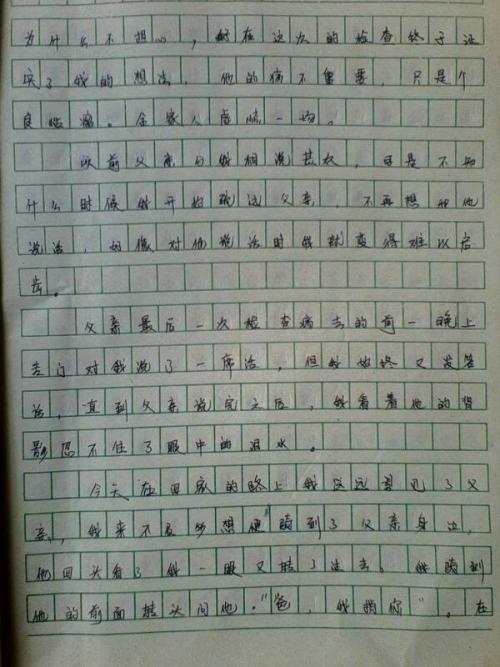 为什么不担心，好在这次的检查终于证
实了我的想法，他的病不重要，只是个
良性瘤。全家人虚惊一场。
以前父亲与我相说甚欢，可是不知
什么时候我开始疏远父亲，不再想和他
说话，好像对他说话时我就变得难以启
齿。
父亲最后一次检查病去的前一晚上
专门对我说了一席话，但我始终又没答
话，直到父亲说完之后，我看着他的背
影忍不住了眼中的泪水。
今天在回家的路上我远远望见了父
亲，我来不及多想便"骑到了父亲身边，
他回头看了我一眼又转了过去。我骑到
他的前面转头问他."爸，我捎你"。在